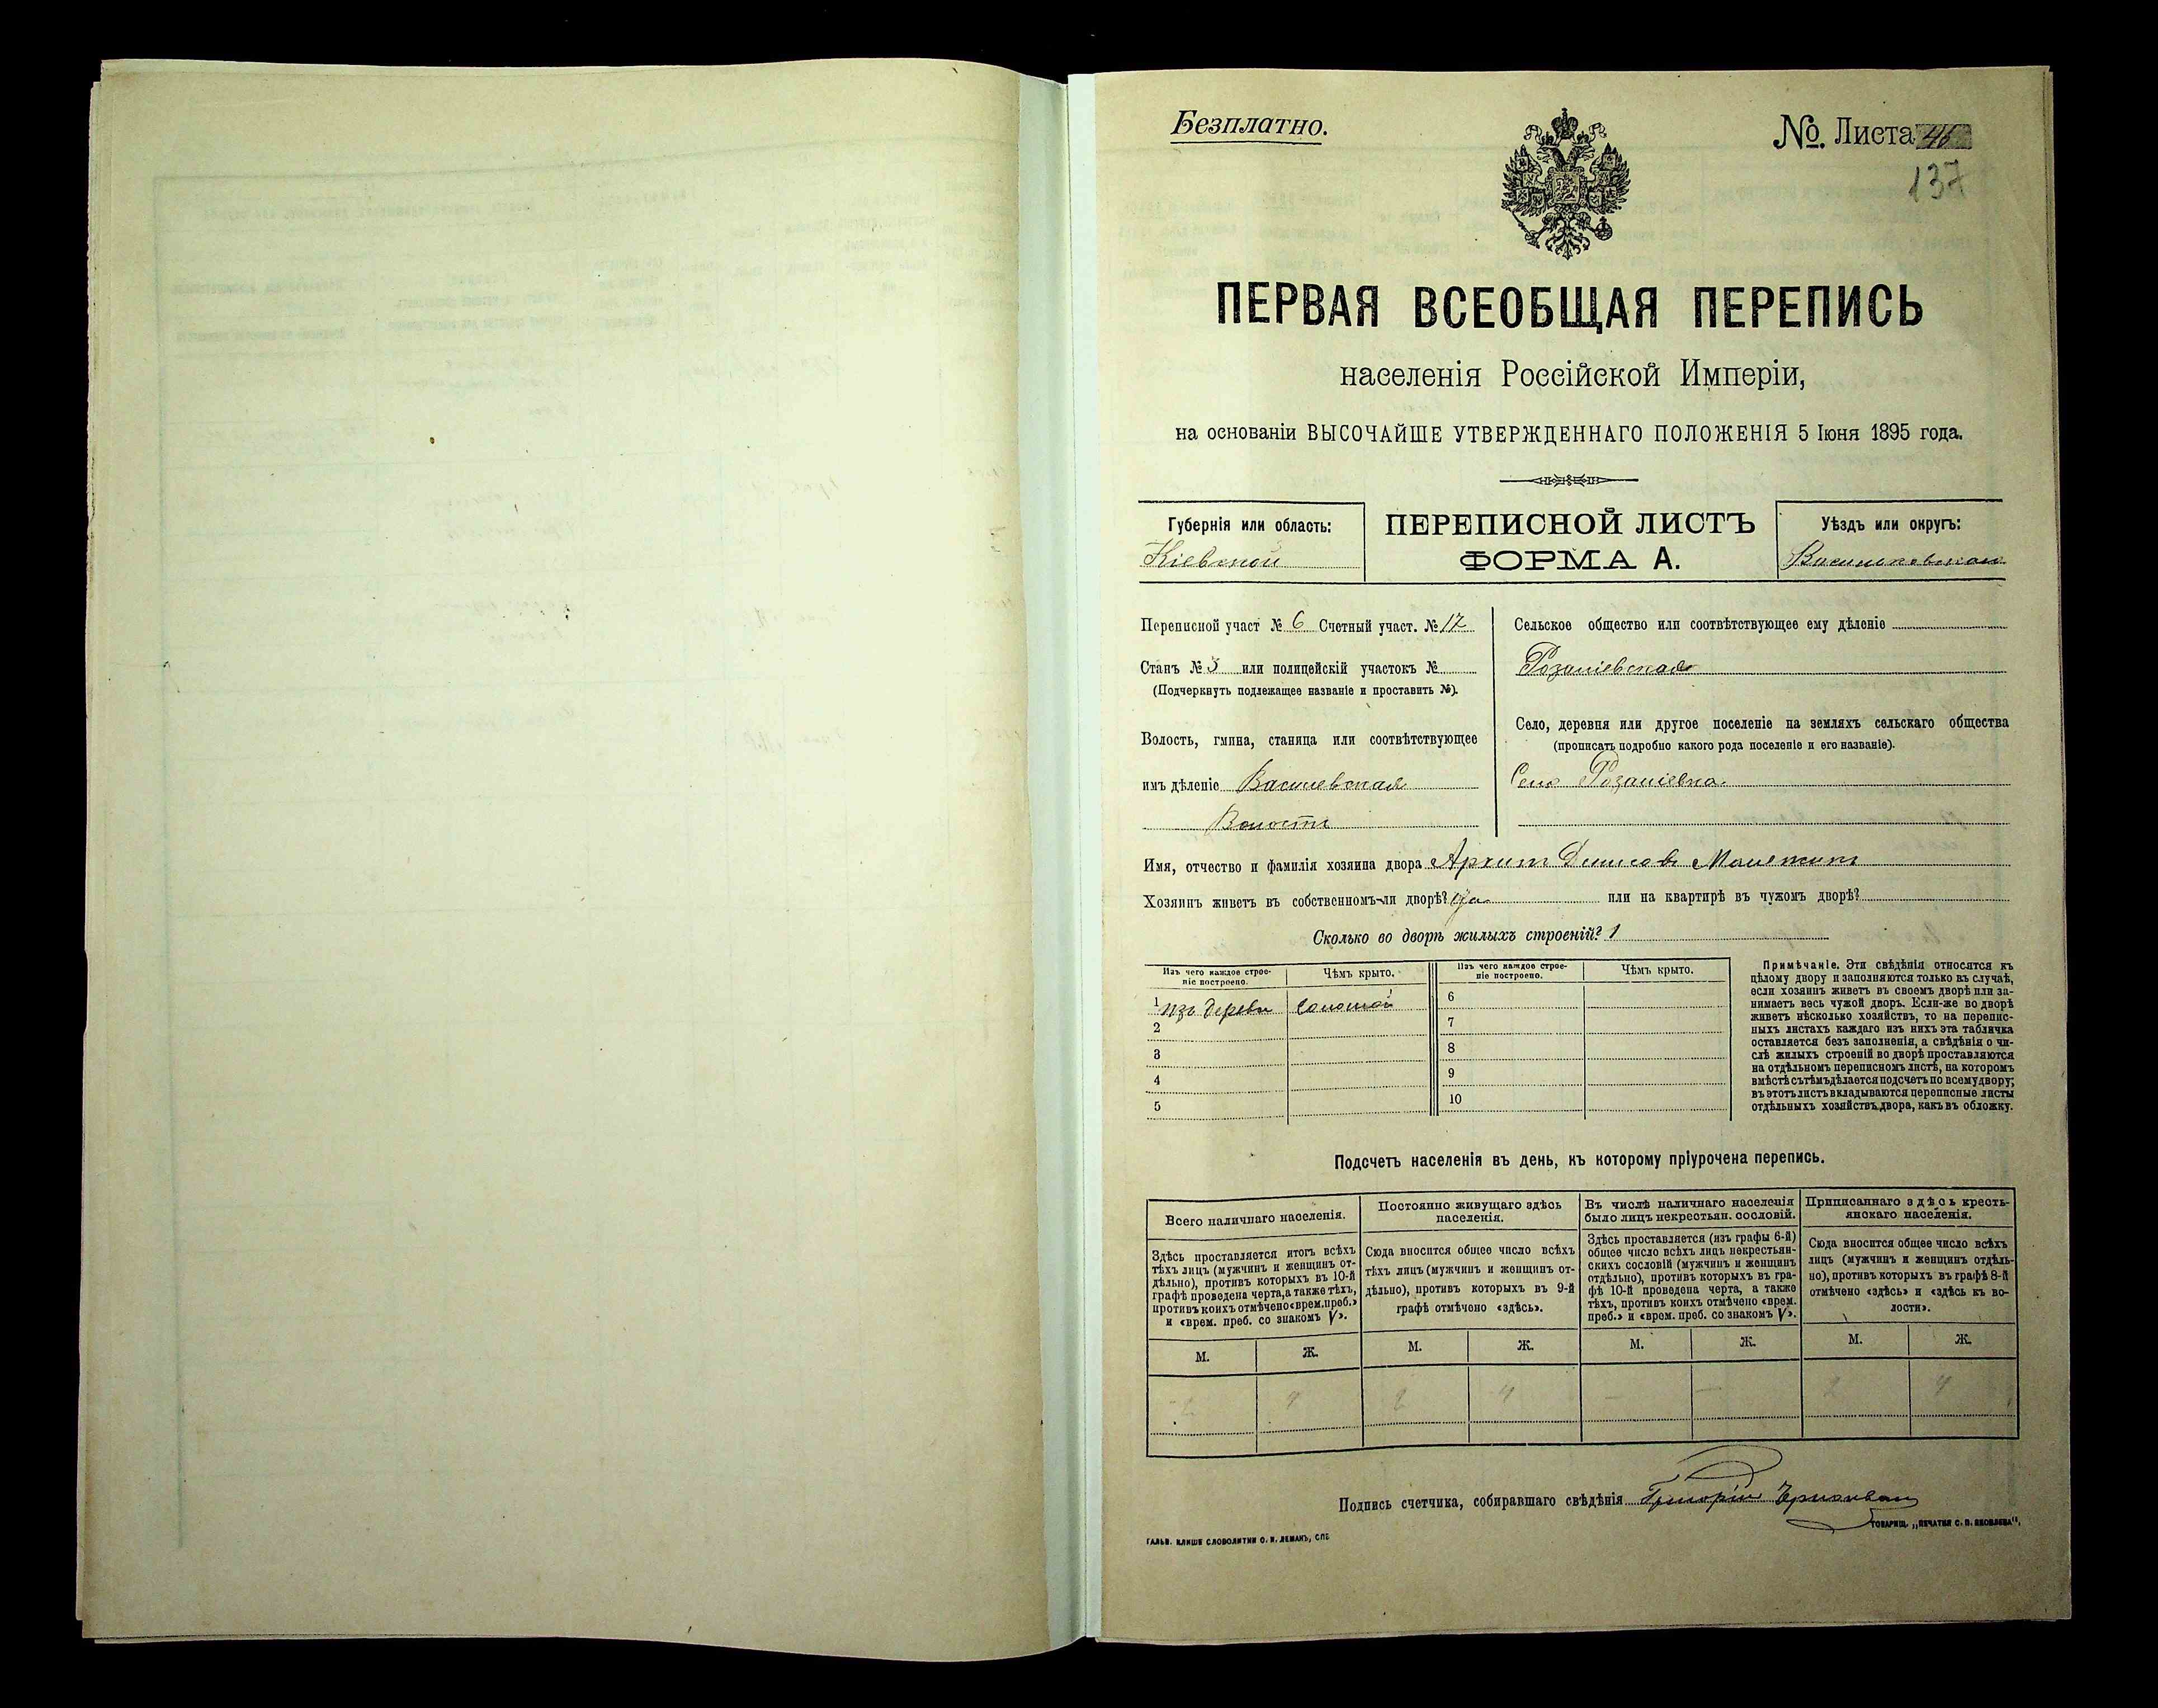 Безплатно.
№. Листа 46
137
ПЕРВАЯ ВСЕОБЩАЯ ПЕРЕПИСЬ
населенія Россійской Имперіи,
на основаніи ВЫСОЧАЙШЕ УТВЕРЖДЕННАГО ПОЛОЖЕНІЯ 5 Іюня 1895 года.
Губернія или область:
Кіевской
ПЕРЕПИСНОЙ ЛИСТЪ
ФОРМА А.
Уѣздъ или округъ:
Переписной участ № 6 Счетный участ. № 12
Станъ № 3 или полицейскій участокъ №
(Подчеркнуть подлежащее названіе и проставить №).
Волость, гмина, станица или соотвѣтствующее
имъ дѣленіе
Волость
Сельское общество или соотвѣтствующее ему дѣленіе
Село, деревня или другое поселеніе на земляхъ сельскаго общества
(прописать подробно какого рода поселеніе и его названіе).
Село
Имя, отчество и фамилія хозяина двора Архип Денисов
Хозяинъ живетъ въ собственномъ-ли дворѣ? да или на квартирѣ въ чужомъ дворѣ?
Сколько во дворѣ жилыхъ строеній? 1
Изъ чего каждое строе-
ніе построено.
Чѣмъ крыто.
1 изъ дерева соломой
2
3
4
5
Изъ чего каждое строе-
ніе построено.
Чѣмъ крыто.
6
7
8
9
10
Примѣчаніе. Эти свѣдѣнія относятся къ
цѣлому двору и заполняются только въ случаѣ,
если хозяинъ живетъ въ своемъ дворѣ или за-
нимаетъ весь чужой дворъ. Если-же во дворѣ
живетъ нѣсколько хозяйствъ, то на перепис-
ныхъ листахъ каждаго изъ нихъ эта табличка
оставляется безъ заполненія, а свѣдѣнія о чи-
слѣ жилыхъ строеній во дворѣ проставляются
на отдѣльномъ переписномъ листѣ, на которомъ
вмѣстѣ съ тѣмъ дѣлается подсчетъ по всему двору;
въ этотъ листъ вкладываются переписные листы
отдѣльныхъ хозяйствъ двора, какъ въ обложку.
Подсчетъ населенія въ день, къ которому пріурочена перепись.
Всего наличнаго населенія.
Здѣсь проставляется итогъ всѣхъ
тѣхъ лицъ (мужчинъ и женщинъ от-
дѣльно), противъ которыхъ въ 10-й
графѣ проведена черта, а также тѣхъ,
противъ коихъ отмѣчено «врем. преб.»
и «врем. преб. со знакомъ V».
М. Ж.
2 4
Постоянно живущаго здѣсь
населенія.
Сюда вносится общее число всѣхъ
тѣхъ лицъ (мужчинъ и женщинъ от-
дѣльно), противъ которыхъ въ 9-й
графѣ отмѣчено «здѣсь».
М. Ж.
2 4
Въ числѣ наличнаго населенія
было лицъ некрестьян. сословій.
Здѣсь проставляется (изъ графы 6-й)
общее число всѣхъ лицъ некрестьян-
скихъ сословій (мужчинъ и женщинъ
отдѣльно), противъ которыхъ въ гра-
фѣ 10-й проведена черта, а также
тѣхъ, противъ коихъ отмѣчено «врем.
преб.» и «врем. преб. со знакомъ V».
М. Ж.
— —
Приписаннаго здѣсь кресть-
янскаго населенія.
Сюда вносится общее число всѣхъ
лицъ (мужчинъ и женщинъ отдѣль-
но), противъ которыхъ въ графѣ 8-й
отмѣчено «здѣсь» и «здѣсь къ во-
лости».
М. Ж.
2 4
Подпись счетчика, собиравшаго свѣдѣнія Григорій
ГАЛЬВ. КЛИШЕ СЛОВОЛИТНИ О. И. ЛЕМАНЪ, СПБ
ТОВАРИЩ. „ПЕЧАТНЯ С. П. ЯКОВЛЕВА“,